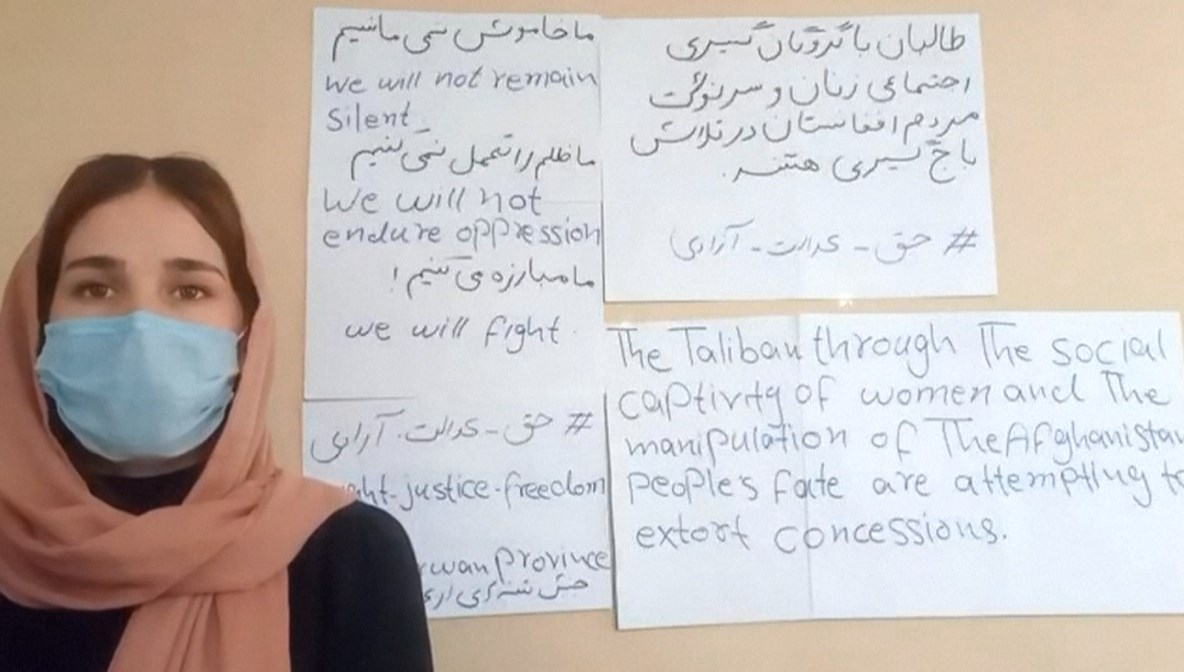 ما خاموش نمی مانیم
we will not remain
Silent
ما ظلم را تحمل نمی کنیم
We will not
endure oppression
ما مبارزه می کنیم !
we will fight
# حق - عدالت - آزادی
ght-justice-freedom
rwan Province
جنبش
طالبان با گروگان گیری
اجتماعی زنان و سرنوشت
مردم افغانستان در تلاش
باج گیری هستند.
# حق - عدالت - آزادی
The Taliban through The social
captivity of women and The
manipulation of The Afghanistan
people's fate are attempting to
extort concessions.